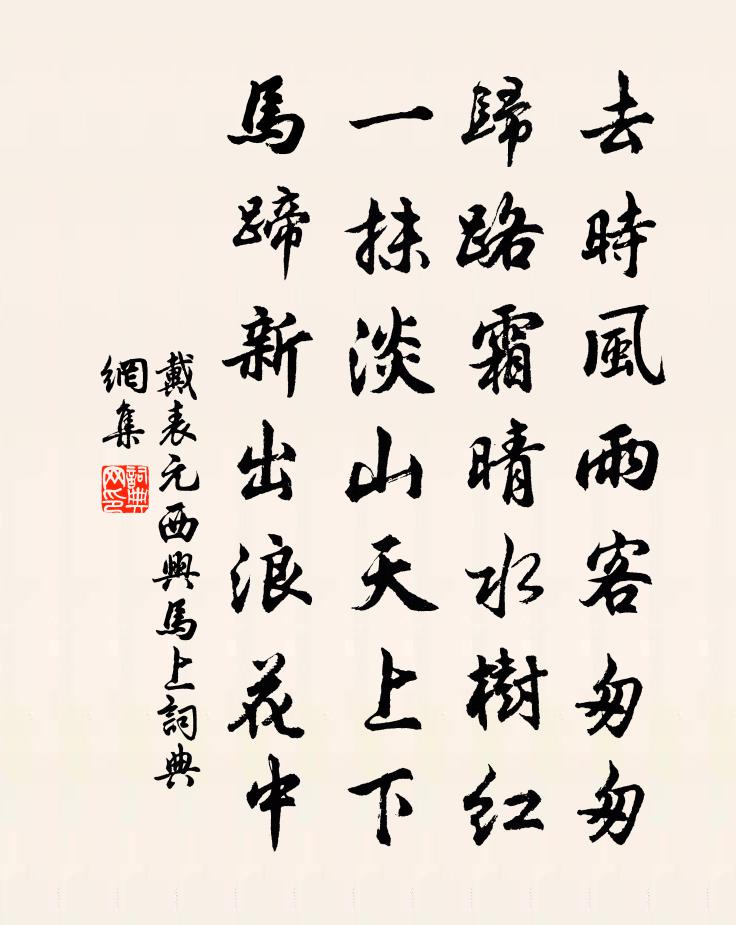 去時風雨客匆匆
歸路霜晴水樹紅
一抹淡山天上下
馬蹄新出浪花中
戴表元西興馬上詞典
網集
詞典
网印